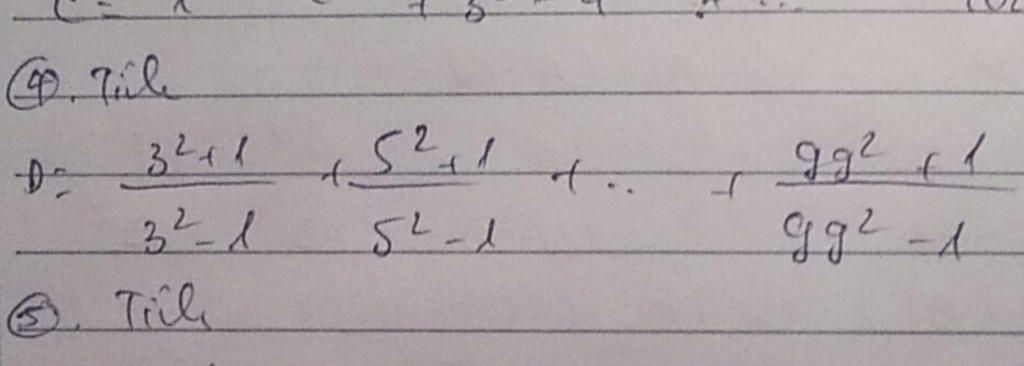 ④. Tính
D = \frac{3^2+1}{3^2-1} + \frac{5^2+1}{5^2-1} + .. + \frac{99^2+1}{99^2-1}
⑤. Tính